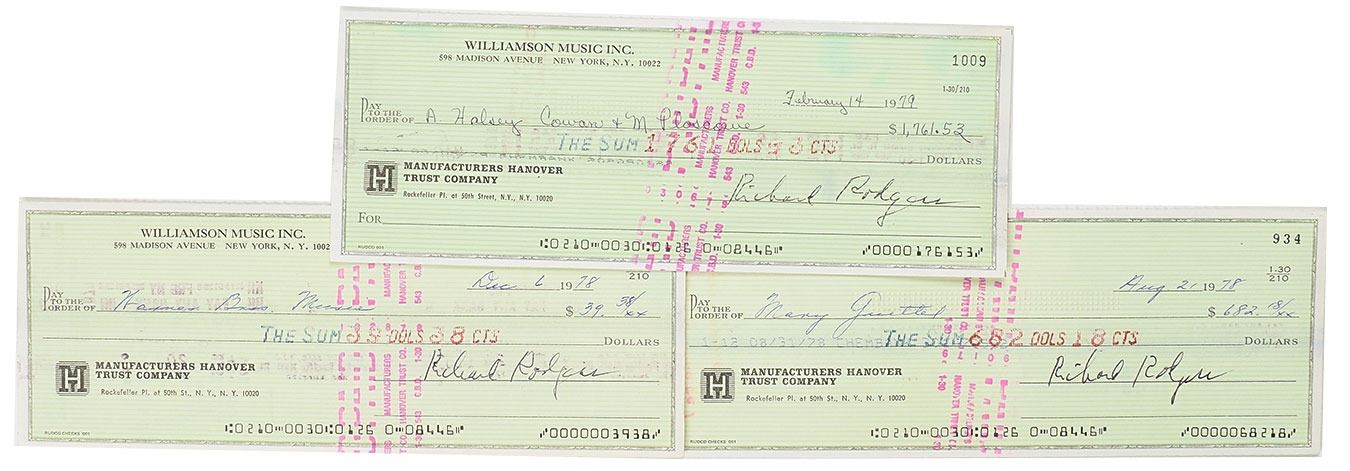 WILLIAMSON MUSIC INC.
598 MADISON AVENUE NEW YORK, N.Y. 10022
1009
February 14 1979
1-30/210
PAY TO THE ORDER OF A. Halsey Cowan & M.
$1,761.53
THE SUM 1761 DOLS 53 CTS
DOLLARS
MANUFACTURERS HANOVER
TRUST COMPANY
Rockefeller Pl. at 50th Street, N.Y., N.Y. 10020
Richard Rodgers
FOR
RUDCO 001
⑆0210⑉0030⑆0126 0⑉08446⑈ ⑇0000176153⑇
WILLIAMSON MUSIC INC.
598 MADISON AVENUE NEW YORK, N. Y. 1002
Dec 6 1978
210
PAY TO THE ORDER OF Warner Bros. Music
$ 39. 38/xx
THE SUM 39 DOLS 38 CTS
DOLLARS
MANUFACTURERS HANOVER
TRUST COMPANY
Rockefeller Pl. at 50th St., N. Y., N.Y. 10020
Richard Rodgers
RUDCO CHECKS 001
⑆0210⑉0030⑆0126 0⑉08446⑈ ⑇0000003938⑇
934
Aug 21 1978
1-30
210
PAY TO THE ORDER OF Mary Guettel
$ 682. 18/xx
1-12 08/31/78 CHEMB THE SUM 682 DOLS 18 CTS
DOLLARS
MANUFACTURERS HANOVER
TRUST COMPANY
Rockefeller Pl. at 50th St., N. Y., N.Y. 10020
Richard Rodgers
RUDCO CHECKS 001
⑆0210⑉0030⑆0126 0⑉08446⑈ ⑇0000068218⑇